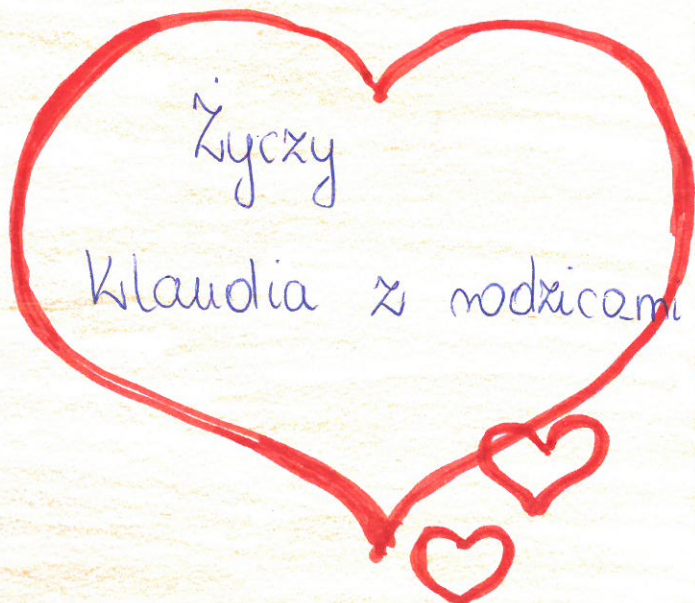 Życzy
Klaudia z rodzicami